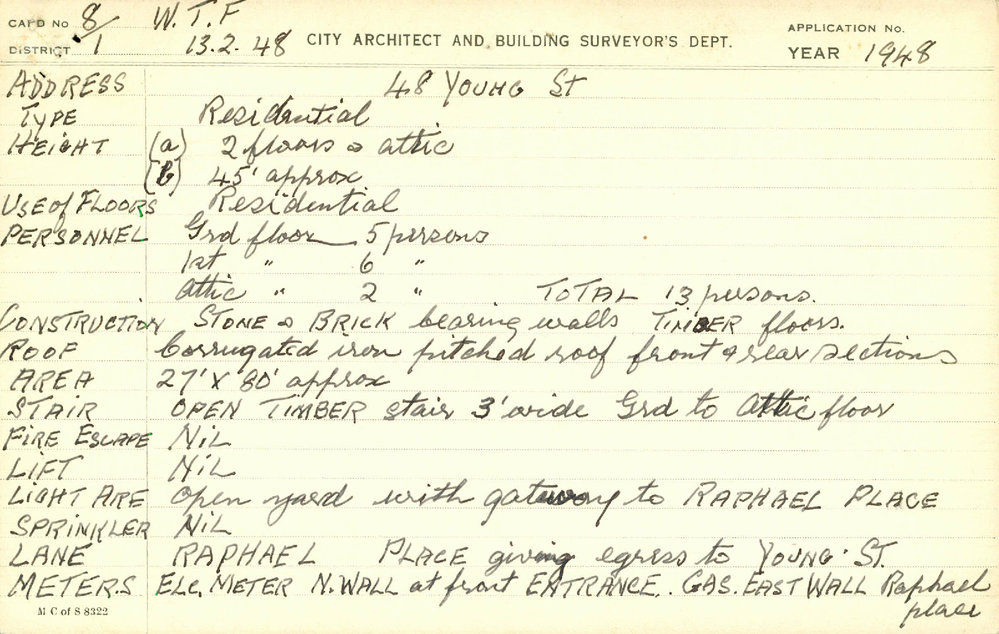 CARD No 8/1 W. T. F APPLICATION No.
DISTRICT 13.2.48 CITY ARCHITECT AND BUILDING SURVEYOR'S DEPT. YEAR 1948
ADDRESS 48 YOUNG ST
TYPE Residential
HEIGHT (a) 2 floors & attic
(b) 45' approx
USE of FLOORS Residential
PERSONNEL Grd floor 5 persons
1st " 6 "
Attic " 2 " TOTAL 13 persons.
CONSTRUCTION STONE & BRICK bearing walls TIMBER floors.
ROOF Corrugated iron pitched roof front & rear sections
AREA 27' X 80' approx
STAIR OPEN TIMBER stair 3' wide Grd to Attic floor
FIRE ESCAPE NiL
LIFT NiL
LIGHT ARE Open yard with gateway to RAPHAEL PLACE
SPRINKLER NiL
LANE RAPHAEL PLACE giving egress to YOUNG ST.
METERS ELC. METER N. WALL at front ENTRANCE. GAS. EAST WALL Raphael
place
M C of S 8322